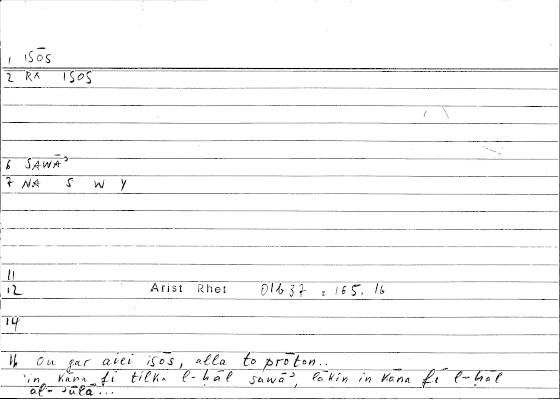 1 ISŌS
2 RX ISOS
6 SAWĀʾ
7 NA S W Y
11
12 Arist Rhet 01b37 = 165.16
14
16 Ou gar aiei isōs, alla to prōton..
in kāna fī tilka l-ḥāl sawāʾ, lākin in kāna fī l-ḥāl
al-ʾūlā...